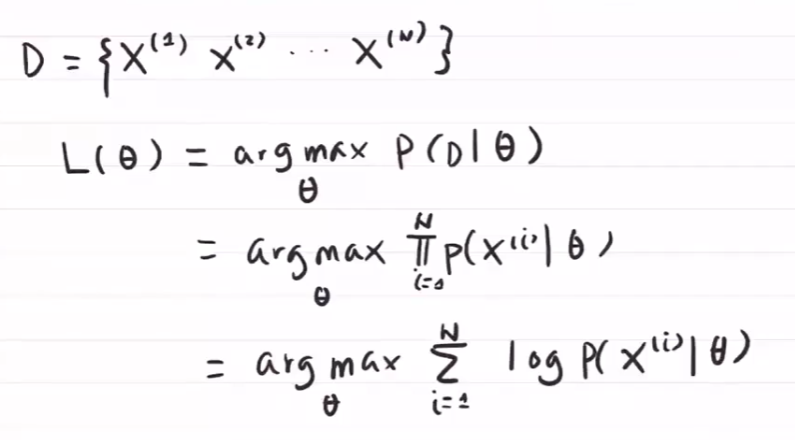 D = {X⁽¹⁾ X⁽²⁾ ⋯ X⁽ᴺ⁾}
L(θ) = arg max_θ P(D|θ)
= arg max_θ ∏_{i=0}^{N} P(X⁽ⁱ⁾|θ)
= arg max_θ ∑_{i=1}^{N} log P(X⁽ⁱ⁾|θ)